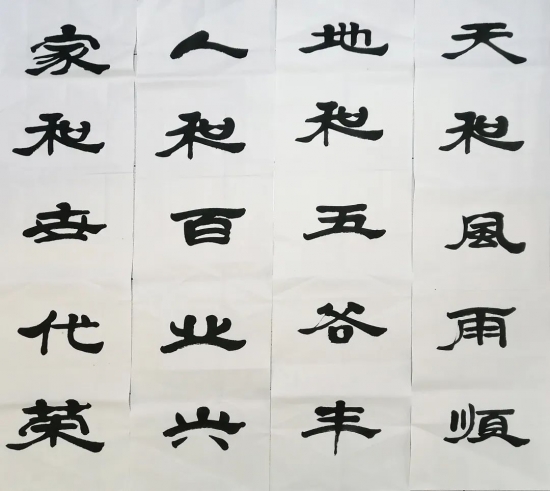 天和風雨順
地和五谷丰
人和百业兴
家和世代荣